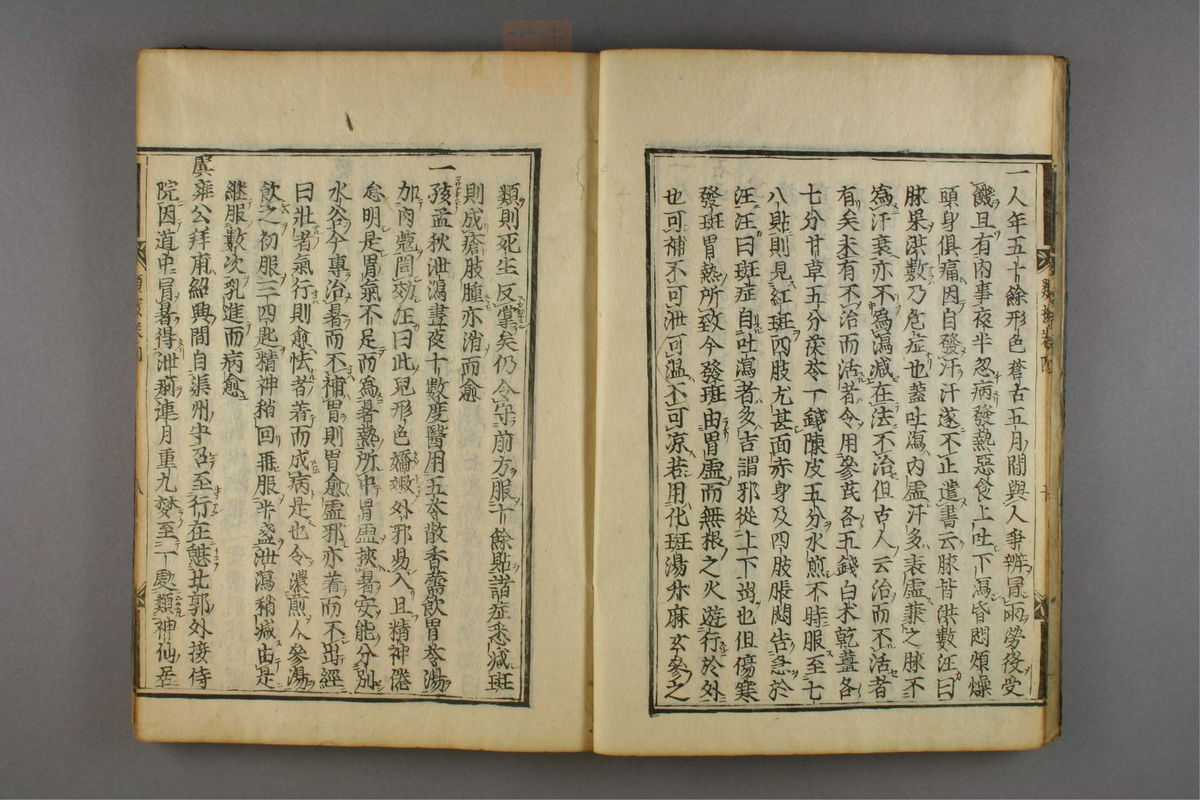 一人年五十餘形色蒼古五月間與人爭辨冒雨勞役受
饑且有内事夜半忽病發熱惡食上吐下瀉昏悶煩燥
頭身俱痛因自發汗汗遂不止遣書云脉皆洪數汪曰
脉果洪數乃危症也蓋吐瀉内虛汗多表虛兼之脉不
爲汗衰亦不爲瀉減在法不治但古人云治而不活者
有矣未有不治而活者令用參芪各五錢白术乾薑各
七分甘草五分茯苓一錢陳皮五分水煎不時服至七
八貼則見紅斑四肢尤甚面赤身及四肢脹悶告急於
汪汪曰斑症自吐瀉者多吉謂邪從上下出也但傷寒
發斑胃熱所致今發斑由胃虛而無根之火遊行於外
也可補不可泄可溫不可凉若用化斑湯升麻玄參之
類則死生反掌矣仍令守前方服十餘貼諸症悉減斑
則成瘡肢腫亦消而愈
一孩孟秋泄瀉晝夜十數度醫用五苓散香薷飲胃苓湯
加肉蔻罔効汪曰此兒形色嬌嫩外邪易入且精神倦
怠明是胃氣不足而爲暑熱所中胃虛挾暑安能分別
水谷今專治暑而不補胃則胃愈虛邪亦着而不出經
曰壯者氣行則愈怯者着而成病是也令濃煎人參湯
飲之初服三四匙精神稍回再服半盞泄瀉稍減由是
継服數次乳進而病愈
虞雍公拜甫紹興間自渠州守召至行在憇北郭外接侍
院因道中冒暑得泄痢連月重九夢至一處類神仙居